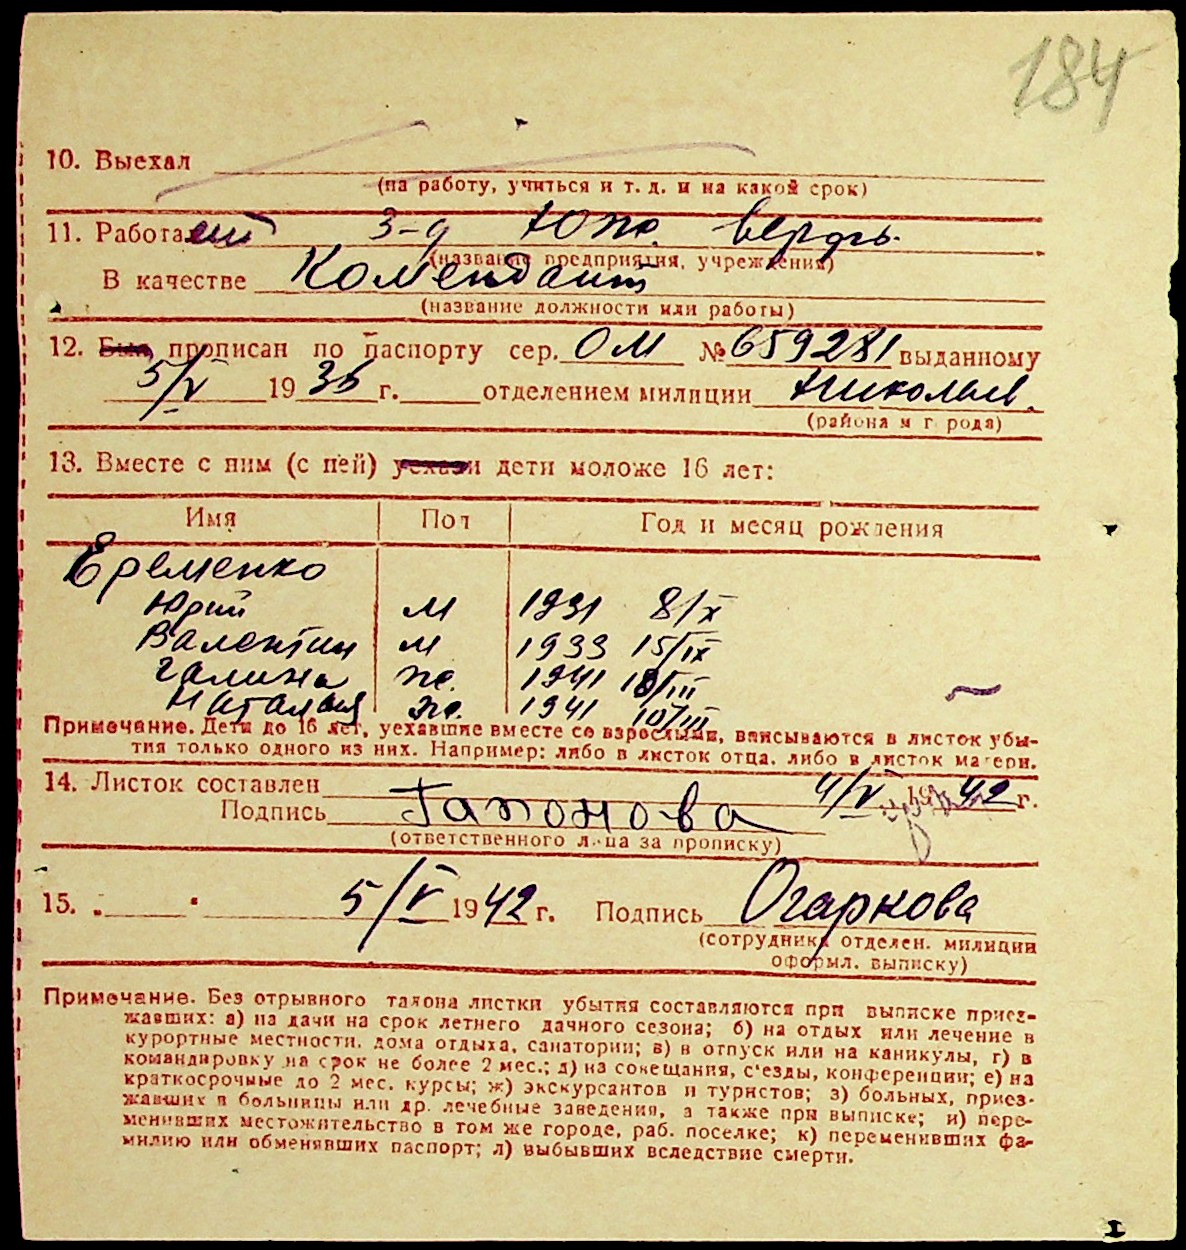 184
10. Выехал
(на работу, учиться и т. д. и на какой срок)
11. Работает З-д Юж. верфь.
(название предприятия, учреждения)
В качестве Комендант
(название должности или работы)
12. Был прописан по паспорту сер. ОМ № 659281 выданному
5/V 1936 г. отделением милиции Николаев.
(района и города)
13. Вместе с ним (с ней) уехали дети моложе 16 лет:
Имя Пол Год и месяц рождения
Еременко
Юрий м 1931 8/X
Валентин м 1933 15/IX
Галина ж. 1941 10/III
Наталия ж. 1941 10/III
Примечание. Дети до 16 лет, уехавшие вместе со взрослыми, вписываются в листок убы-
тия только одного из них. Например: либо в листок отца, либо в листок матери.
14. Листок составлен 4/V 1942 г.
Подпись Гапонова
(ответственного лица за прописку)
15. „ " 5/V 1942 г. Подпись Огаркова
(сотрудника отделен. милиции
оформл. выписку)
Примечание. Без отрывного талона листки убытия составляются при выписке приез-
жавших: а) на дачи на срок летнего дачного сезона; б) на отдых или лечение в
курортные местности, дома отдыха, санатории; в) в отпуск или на каникулы, г) в
командировку на срок не более 2 мес.; д) на совещания, с'езды, конференции; е) на
краткосрочные до 2 мес. курсы; ж) экскурсантов и туристов; з) больных, приез-
жавших в больницы или др. лечебные заведения, а также при выписке; и) пере-
менивших местожительство в том же городе, раб. поселке; к) переменивших фа-
милию или обменявших паспорт; л) выбывших вследствие смерти.